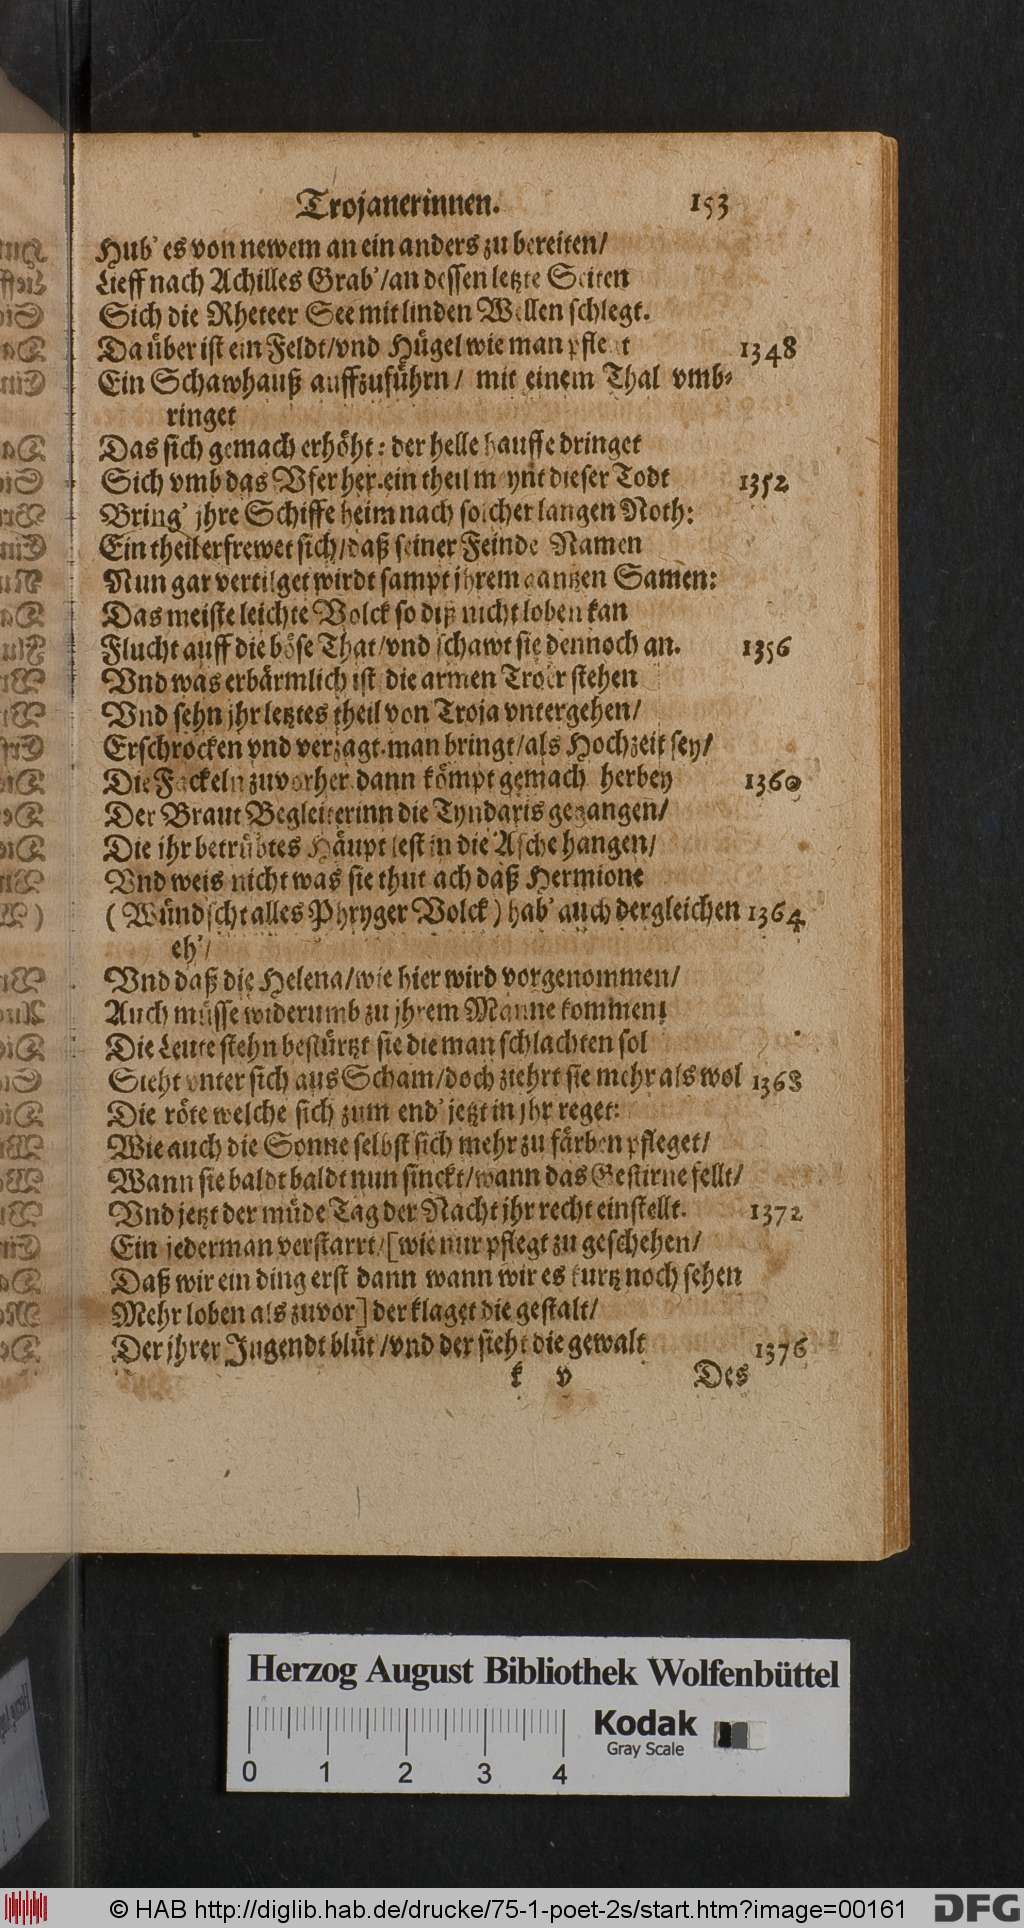 Trojanerinnen. 153
Hub' es von newem an ein anders zu bereiten/
Lieff nach Achilles Grab'/an dessen letzte Seiten
Sich die Rheteer See mit linden Wellen schlegt.
Da über ist ein Feldt/vnd Hügel wie man pflegt 1348
Ein Schawhauß auffzuführn/ mit einem Thal vmb-
ringet
Das sich gemach erhöht: der helle hauffe dringet
Sich vmb das Vfer her. ein theil meynt dieser Todt 1352
Bring' jhre Schiffe heim nach solcher langen Noth:
Ein theil erfrewet sich/daß seiner Feinde Namen
Nun gar vertilget wirdt sampt jhrem gantzen Samen:
Das meiste leichte Volck so diß nicht loben kan
Flucht auff die böse That/vnd schawt sie dennoch an. 1356
Vnd was erbärmlich ist die armen Troer stehen
Vnd sehn jhr letztes theil von Troja vntergehen/
Erschrocken vnd verzagt. man bringt/als Hochzeit sey/
Die Fackeln zuvorher. dann kömpt gemach herbey 1360
Der Braut Begleiterinn die Tyndaris gegangen/
Die ihr betrübtes Häupt lest in die Asche hangen/
Vnd weis nicht was sie thut ach daß Hermione
(Wündscht alles Phryger Volck) hab' auch dergleichen 1364
eh'/
Vnd daß die Helena/wie hier wird vorgenommen/
Auch müsse widerumb zu jhrem Manne kommen!
Die Leute stehn bestürtzt sie die man schlachten sol
Sieht vnter sich aus Scham/doch ziehrt sie mehr als wol 1368
Die röte welche sich zum end' jetzt in jhr reget:
Wie auch die Sonne selbst sich mehr zu färben pfleget/
Wann sie baldt baldt nun sinckt/wann das Gestirne fellt/
Vnd jetzt der müde Tag der Nacht jhr recht einstellt. 1372
Ein jederman verstarrt/[wie nur pflegt zu geschehen/
Daß wir ein ding erst dann wann wir es kurtz noch sehen
Mehr loben als zuvor] der klaget die gestalt/
Der jhrer Jugendt blüt/vnd der sieht die gewalt 1376
k v Des
Herzog August Bibliothek Wolfenbüttel
Kodak
Gray Scale
0 1 2 3 4
© HAB http://diglib.hab.de/drucke/75-1-poet-2s/start.htm?image=00161 DFG